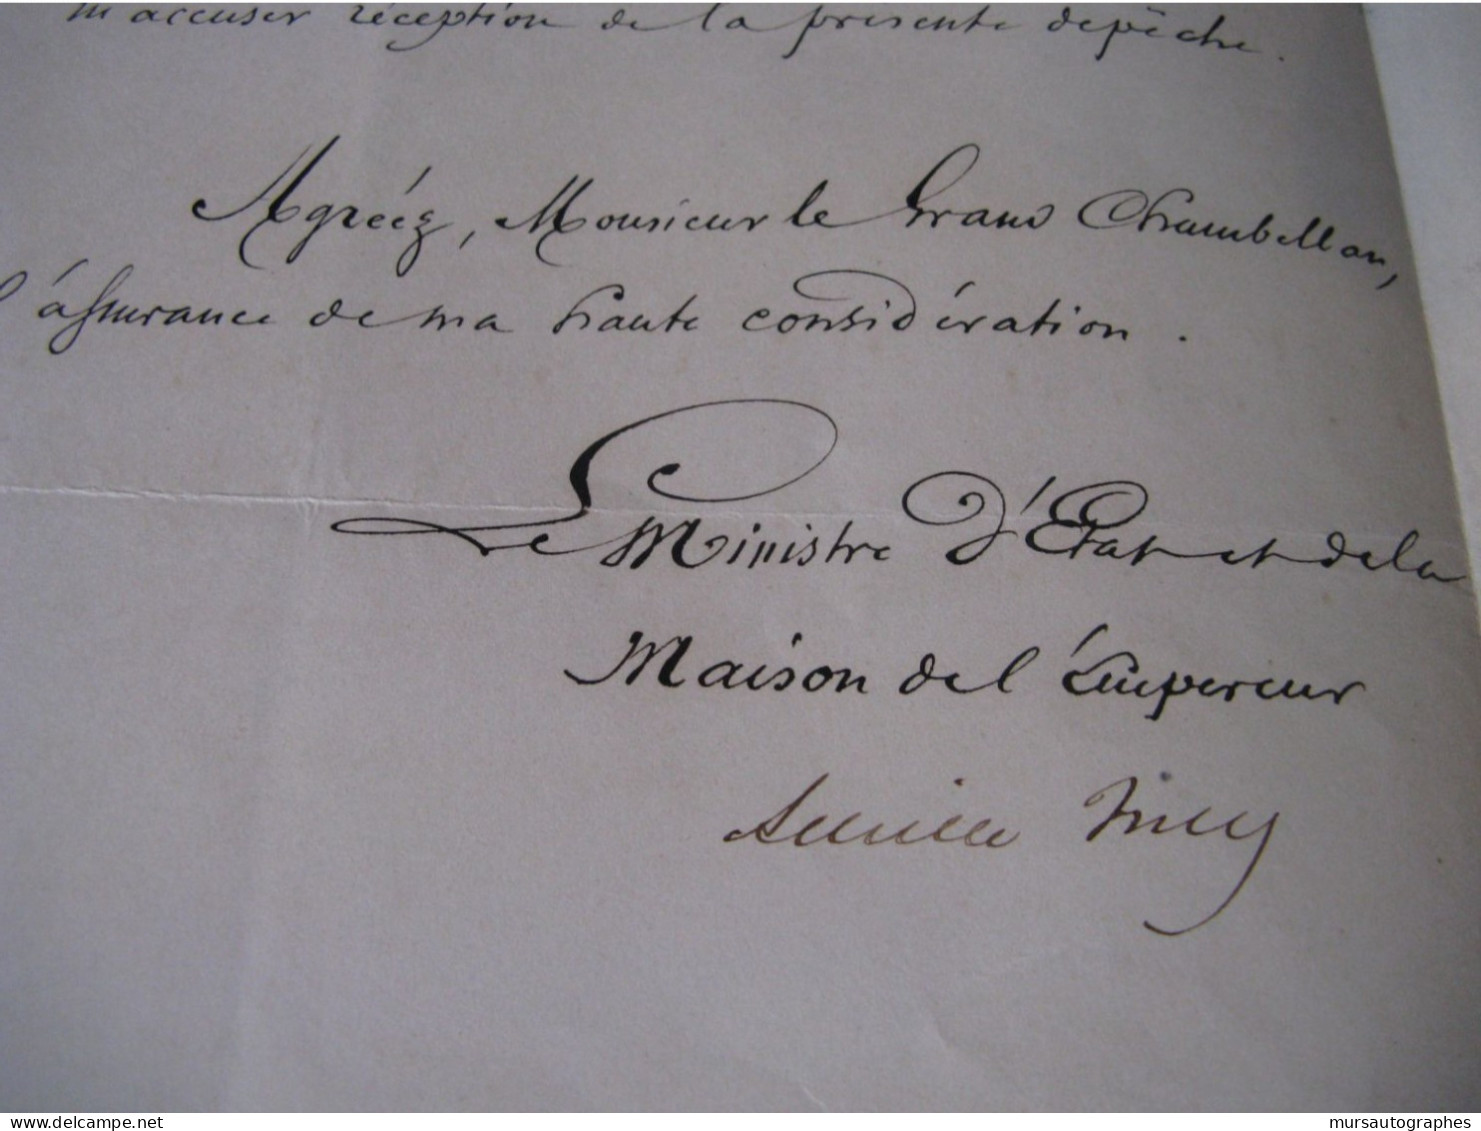 m'accuser réception de la présente dépêche.
Agréez, Monsieur le Grand Chambellan,
l'assurance de ma haute considération.
Le Ministre d'Etat et de la
Maison de l'Empereur
Delcampe.net
mursautographes